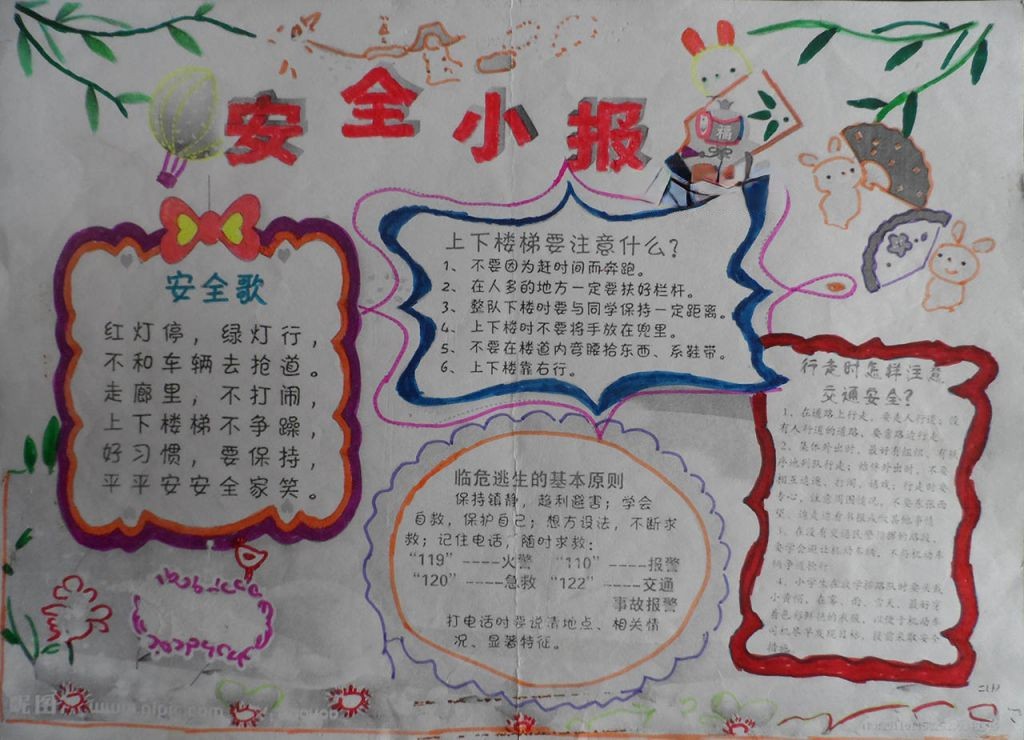 安全小报
安全歌
红灯停，绿灯行，
不和车辆去抢道。
走廊里，不打闹，
上下楼梯不争躁，
好习惯，要保持，
平平安安全家笑。
上下楼梯要注意什么?
1、不要因为赶时间而奔跑。
2、在人多的地方一定要扶好栏杆。
3、整队下楼时要与同学保持一定距离。
4、上下楼时不要将手放在兜里。
5、不要在楼道内弯腰拾东西、系鞋带。
6、上下楼靠右行。
福
临危逃生的基本原则
保持镇静，趋利避害；学会
自救，保护自己；想方设法，不断求
救；记住电话，随时求救：
“119”-----火警 “110”-----报警
“120”-----急救 “122”-----交通
事故报警
打电话时要说清地点、相关情
况、显著特征。
行走时怎样注意
交通安全?
1、在道路上行走，要走人行道；没
有人行道的道路，要靠路边行走。
2、集体外出时，最好有组织、有秩
序地列队行走；结伴外出时，不要
相互追逐、打闹、嬉戏；行走时要
专心，注意周围情况，不要东张西
望、边走边看书报或做其他事情
3、在没有交通民警指挥的路段，
要学会避让机动车辆，不与机动车
辆争道抢行
4、小学生在放学排路队时要头戴
小黄帽，在雾、雨、雪天，最好穿
着色彩鲜艳的衣服，以便于机动车
司机尽早发现目标，提前采取安全
措施
昵图 www.nipic.com